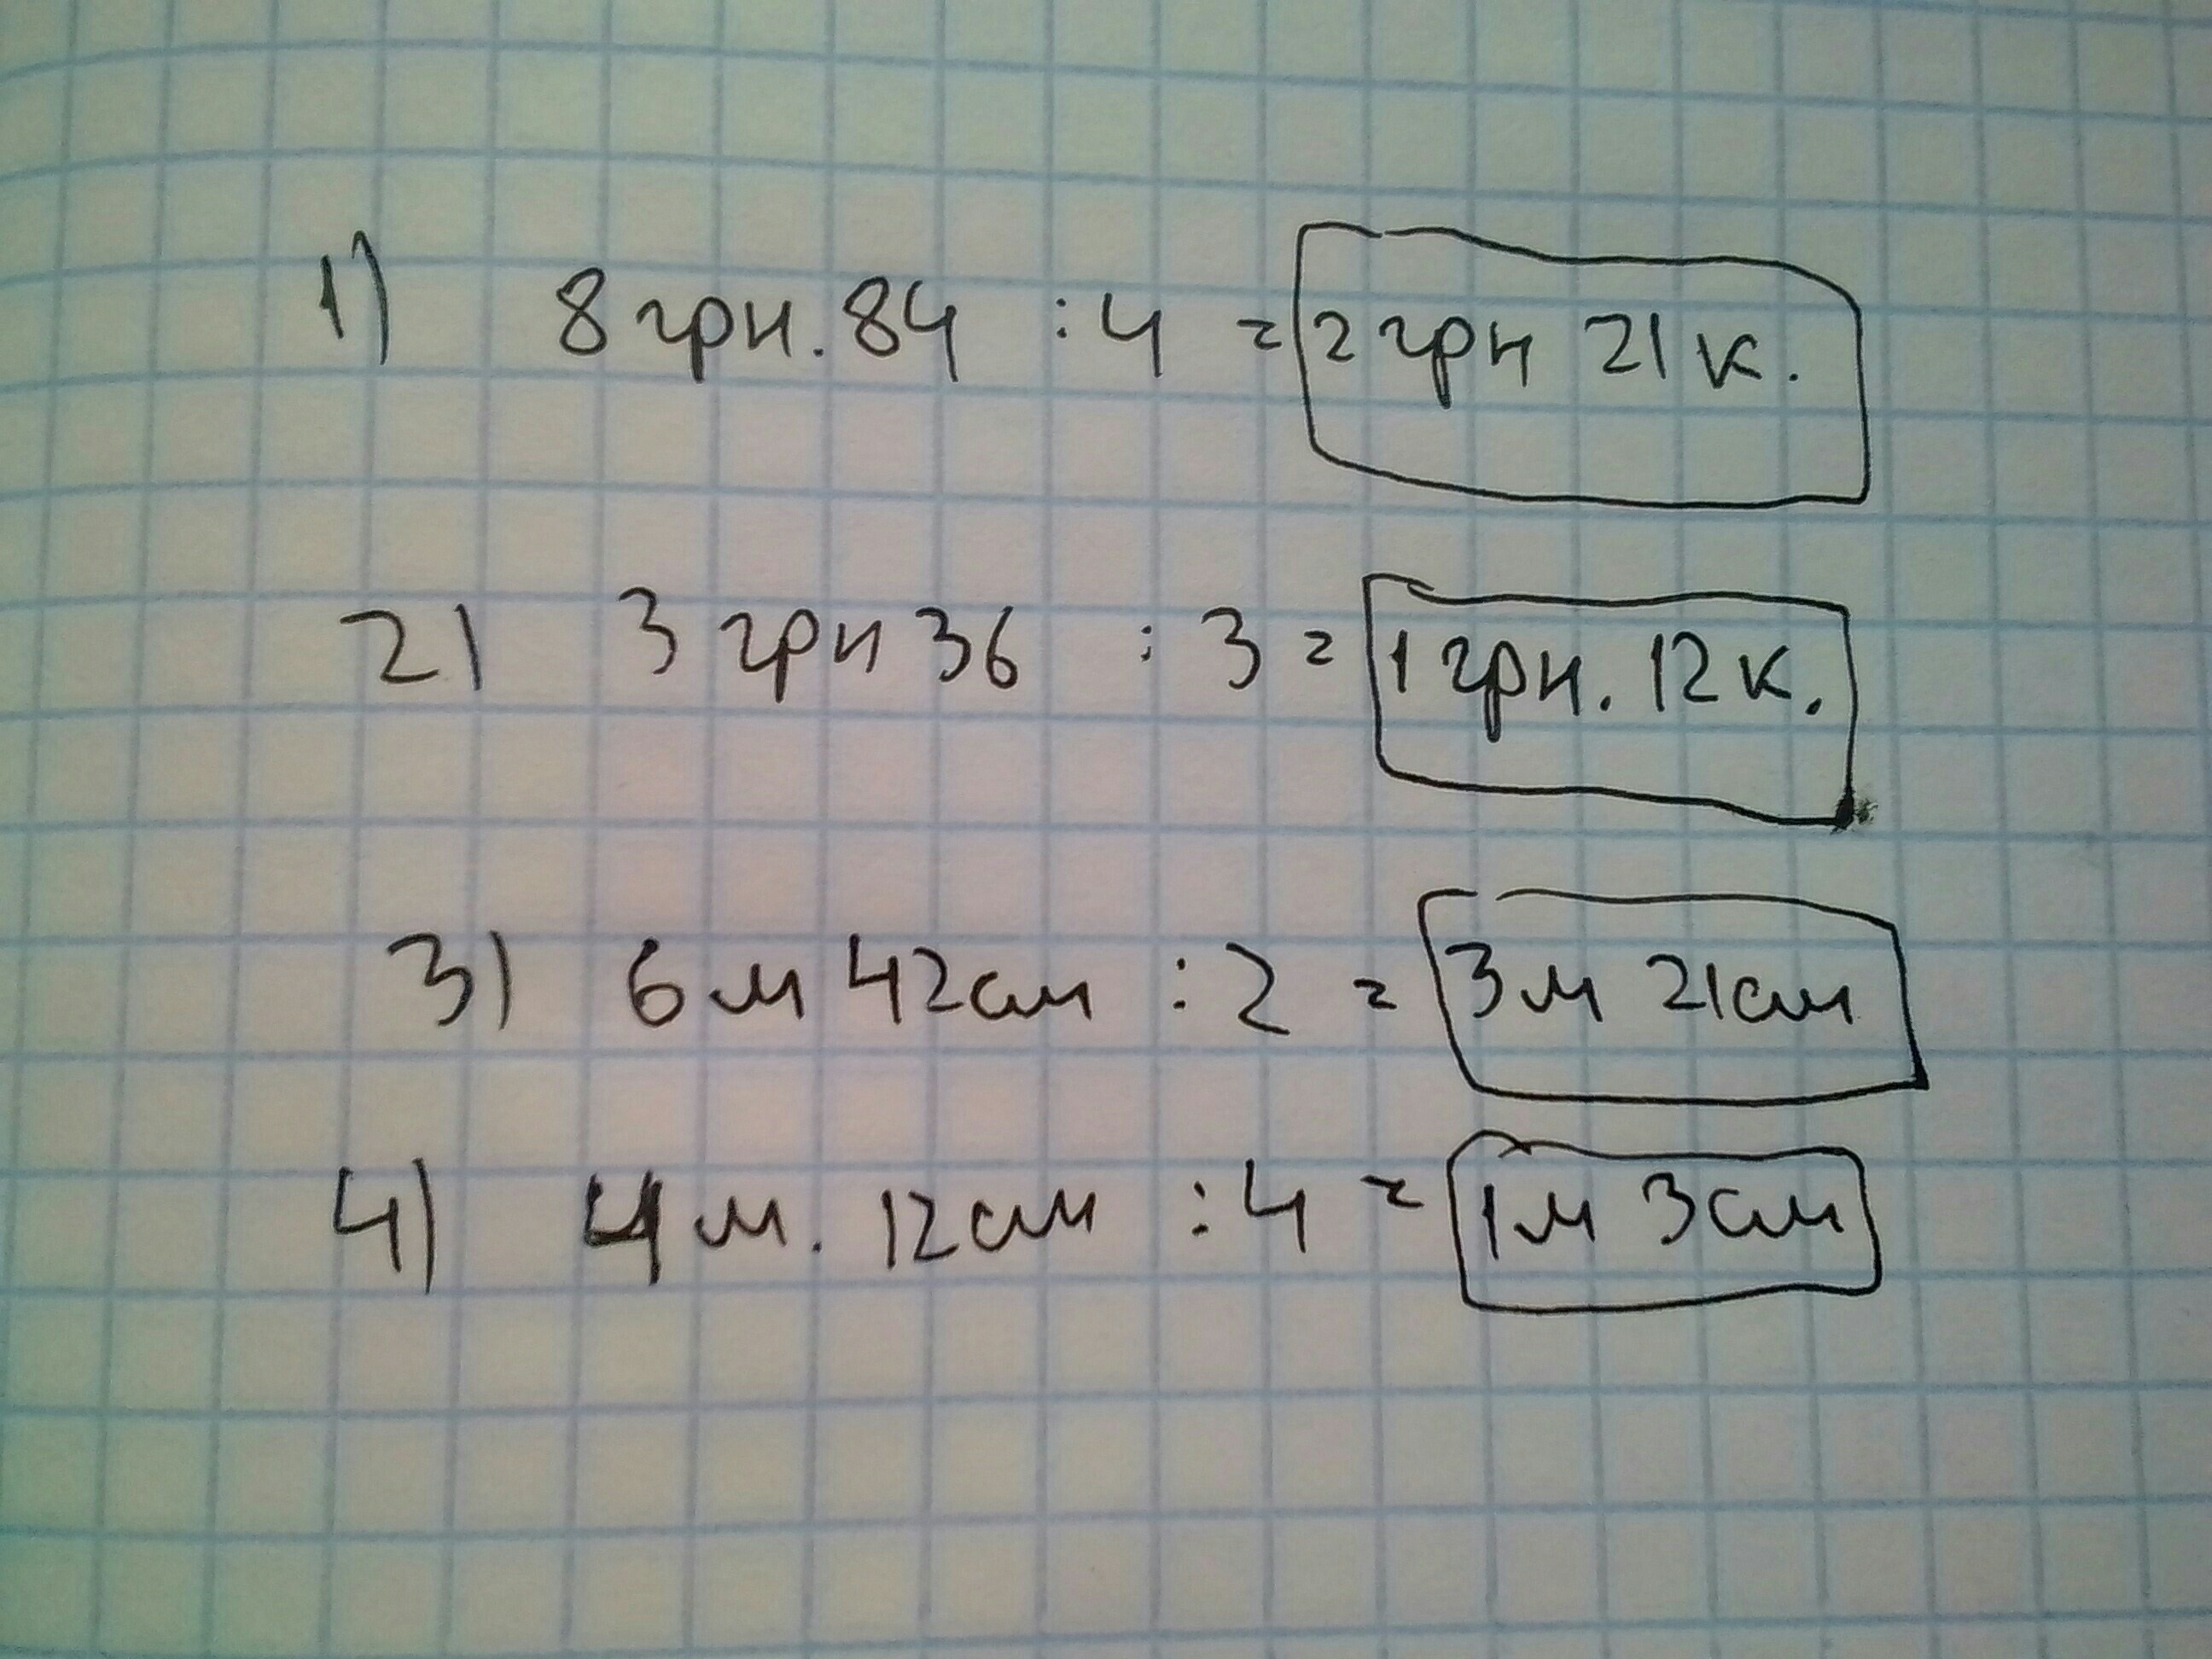 1) 8 грн. 84 : 4 = 2 грн 21 к.
2) 3 грн 36 : 3 = 1 грн. 12 к.
3) 6 м 42 см : 2 = 3 м 21 см
4) 4 м. 12 см : 4 = 1 м 3 см